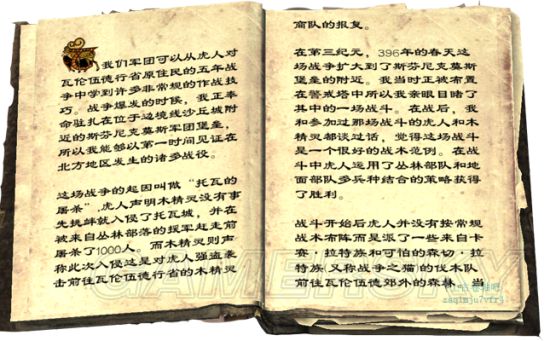 我们军团可以从虎人对
瓦伦伍德行省原住民的五年战
争中学到许多非常规的作战技
巧。战争爆发的时候，我正奉
命驻扎在位于边境线沙丘城附
近的斯芬尼克莫斯军团堡垒，
所以我能够以第一时间见证在
北方地区发生的诸多战役。
这场战争的起因叫做“托瓦的
屠杀”虎人声明木精灵没有事
先挑衅就入侵了托瓦城，并在
被来自丛林部落的援军赶走前
屠杀了1000人。而木精灵则声
称此次入侵这是对虎人强盗袭
击前往瓦伦伍德行省的木精灵
商队的报复。
在第三纪元，396年的春天这
场战争扩大到了斯芬尼克莫斯
堡垒的附近。我当时正被布置
在警戒塔中所以我亲眼目睹了
其中的一场战斗。在战后，我
和参加过那场战斗的虎人和木
精灵都谈过话，觉得这场战斗
是一个很好的战术范例。在战
斗中虎人运用了丛林部队和地
面部队多兵种结合的策略获得
了胜利。
战斗开始后虎人并没有按常规
战术布阵而是派了一些来自卡
赛·拉特族和可怕的森切·拉
特族（又称战争之猫）的伐木队
前往瓦伦伍德郊外的森林。当
GAMERSKY
zaqimju7vfr4